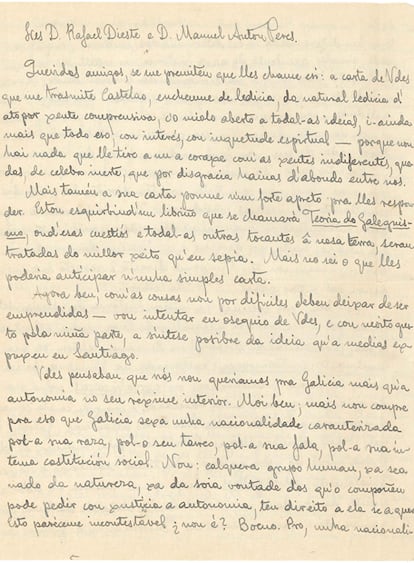 Sres D. Rafael Dieste e D. Manuel Antonio Peres.
Queridos amigos, se me premiten que lles chame así: a carta de Vdes
que me trasmite Castelao, encheume de ledicia, da natural ledicia d'
atopar xente comprensiva, do miolo aberto a todal-as ideias, i-ainda
mais que todo eso, con interés, con inquetude espiritual — porque non
hai nada que lle tire a un a coraxe com'as xentes indiferentes, que
das, de celebro inerte, que por disgracia hainas d'abondo entre nós.
Mais tamén a sua carta ponme n'un forte apreto pra lles respon
der. Estou esquirbind'un libriño que se chamará Teoría do Galeguis-
mo, ond'esas cuestiós e todal-as outras tocantes â nosa terra, seran
tratadas do millor xeito qu'eu sepia. Mais no sei o que lles
podería anticipar n'unha simples carta.
Agora ben, com'as cousas non por difíciles deben deixar de ser
emprendidas — vou intentar en osequio de Vdes, e con moito gus-
to pol-a miña parte, a síntese posibre da ideia qu'a medias ex
puxen en Santiago.
Vdes pensaban que nós non queriamos pra Galicia mais qu'a
autonomia no seu rexime interior. Moi ben; mais non compre
pra eso que Galicia sexa unha nacionalidade carauterizada
pol-a sua raza, pol-o seu tarreo, pol-a sua fala, pol-a sua ín-
tema costitución social. Non: calquera grupo human, xa sea
nado da natureza, xa da soia vontade dos qu'o compoñen
pode pedir con xusticia a autonomia, ten direito a ela se a quer
Esto paréceme incontestabel ¿non é? Boeno. Pro, unha nacionali-